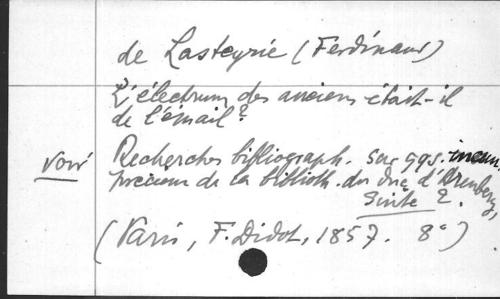 de Lasteyrie (Ferdinand)
L'électrum des anciens était-il
de l'émail?
voir Recherches bibliograph. sur qqs. incun.
précieux de la biblioth. du duc d'Arenberg,
Suite 2.
(Paris, F. Didot, 1857. 8°)